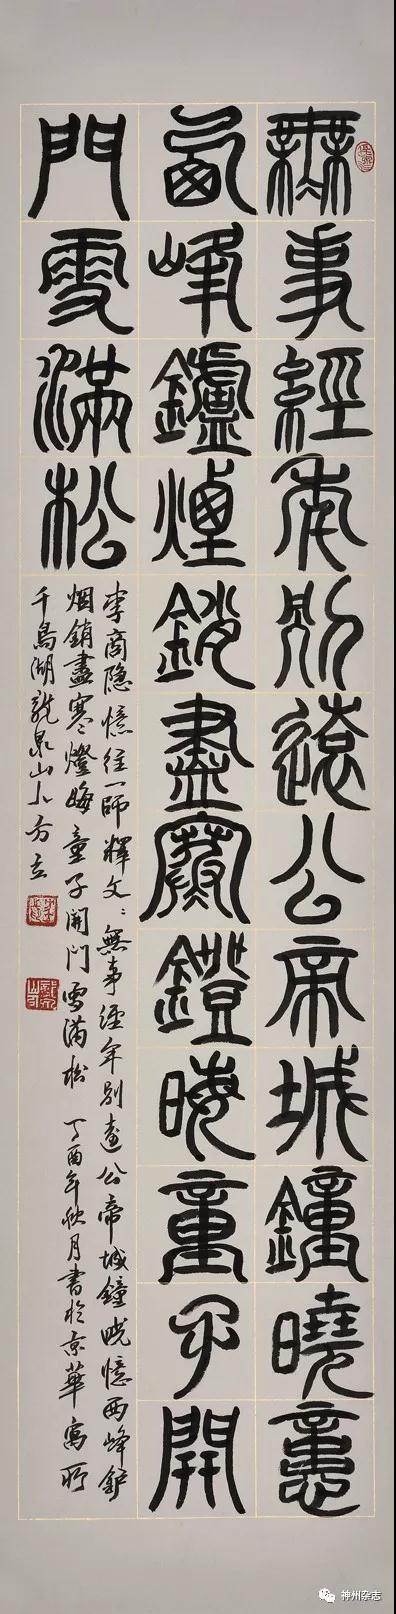 無事經年別遠公帝城鐘曉憶
西峰鑪煙銷盡寒鐙晦童子開
門雪滿松
李商隐憶住一師釋文:無事經年别遠公帝城鐘晓憶西峰鈩
烟銷盡寒燈晦童子開门雪满松 丁酉年秋月書於京華寓所
千島湖龍泉山人方立
神州杂志